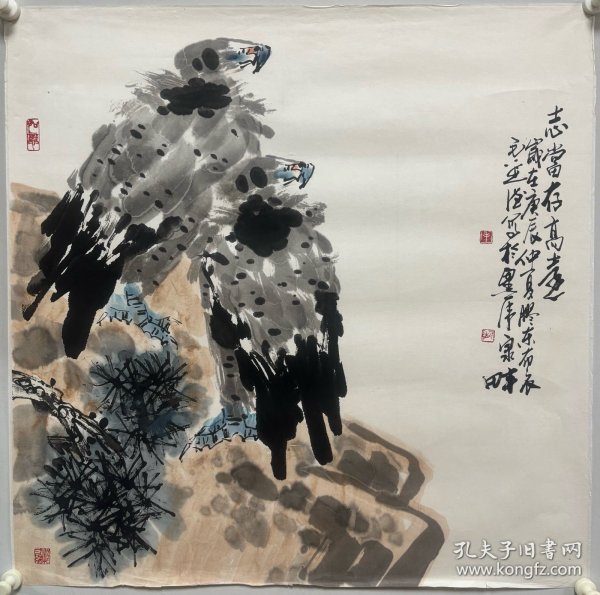 志當存高遠
歲在庚辰仲夏膠東布衣
寫於墨
泉畔
孔夫子旧书网
www.kongfz.com